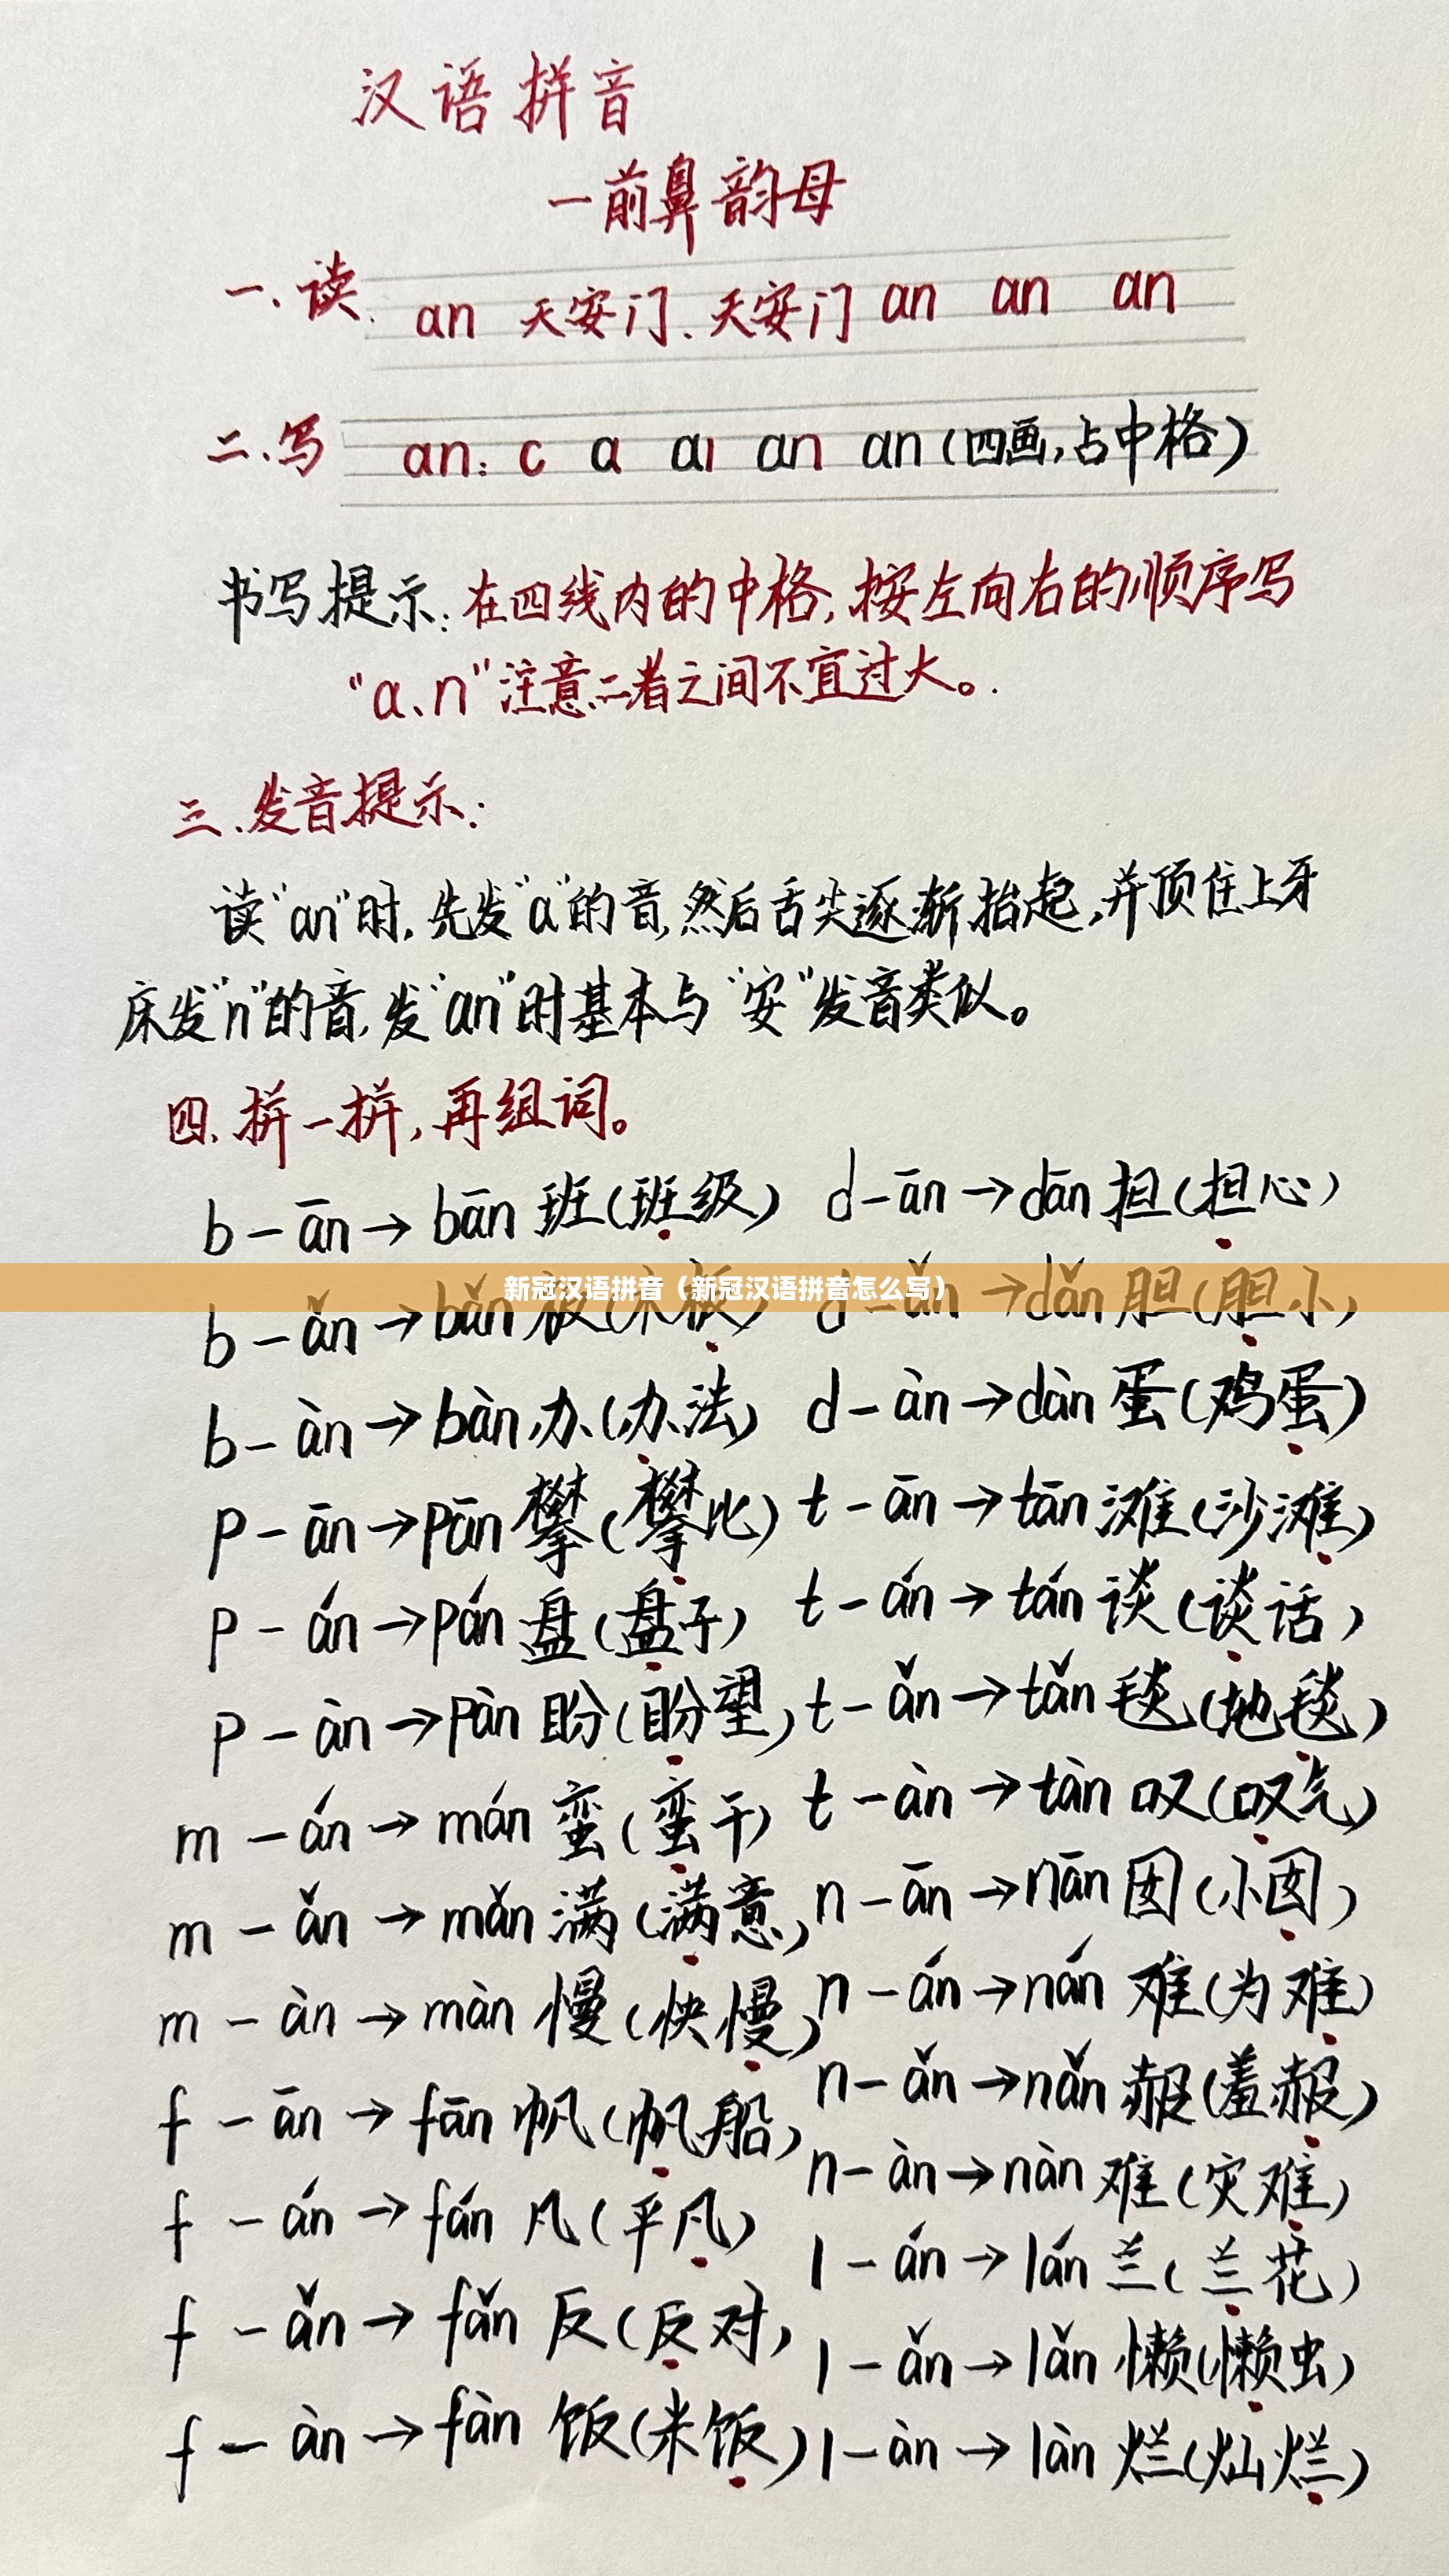 汉语拼音
一前鼻韵母
一、读 an 天安门、天安门 an an an
二、写 an: c a aı an an (四画,占中格)
书写提示:在四线内的中格,按左向右的顺序写
“a、n”注意二者之间不宜过大。
三、发音提示:
读“an”时,先发“a”的音,然后舌尖逐渐抬起,并顶住上牙
床发“n”的音,发“an”时基本与“安”发音类似。
四、拼一拼,再组词。
b-ān→bān 班(班级) d-ān→dān 担(担心)
新冠汉语拼音(新冠汉语拼音怎么写)
b-ǎn→bǎn 板(木板) d-ǎn→dǎn 胆(胆小)
b-àn→bàn 办(办法) d-àn→dàn 蛋(鸡蛋)
p-ān→pān 攀(攀比) t-ān→tān 滩(沙滩)
p-án→pán 盘(盘子) t-án→tán 谈(谈话)
p-àn→pàn 盼(盼望) t-ǎn→tǎn 毯(地毯)
m-án→mán 蛮(蛮干) t-àn→tàn 叹(叹气)
m-ǎn→mǎn 满(满意) n-ān→nān 囡(小囡)
m-àn→màn 慢(快慢) n-án→nán 难(为难)
f-ān→fān 帆(帆船) n-ǎn→nǎn 赧(羞赧)
f-án→fán 凡(平凡) n-àn→nàn 难(灾难)
f-ǎn→fǎn 反(反对) l-án→lán 兰(兰花)
f-àn→fàn 饭(米饭) l-ǎn→lǎn 懒(懒虫)
l-àn→làn 烂(灿烂)